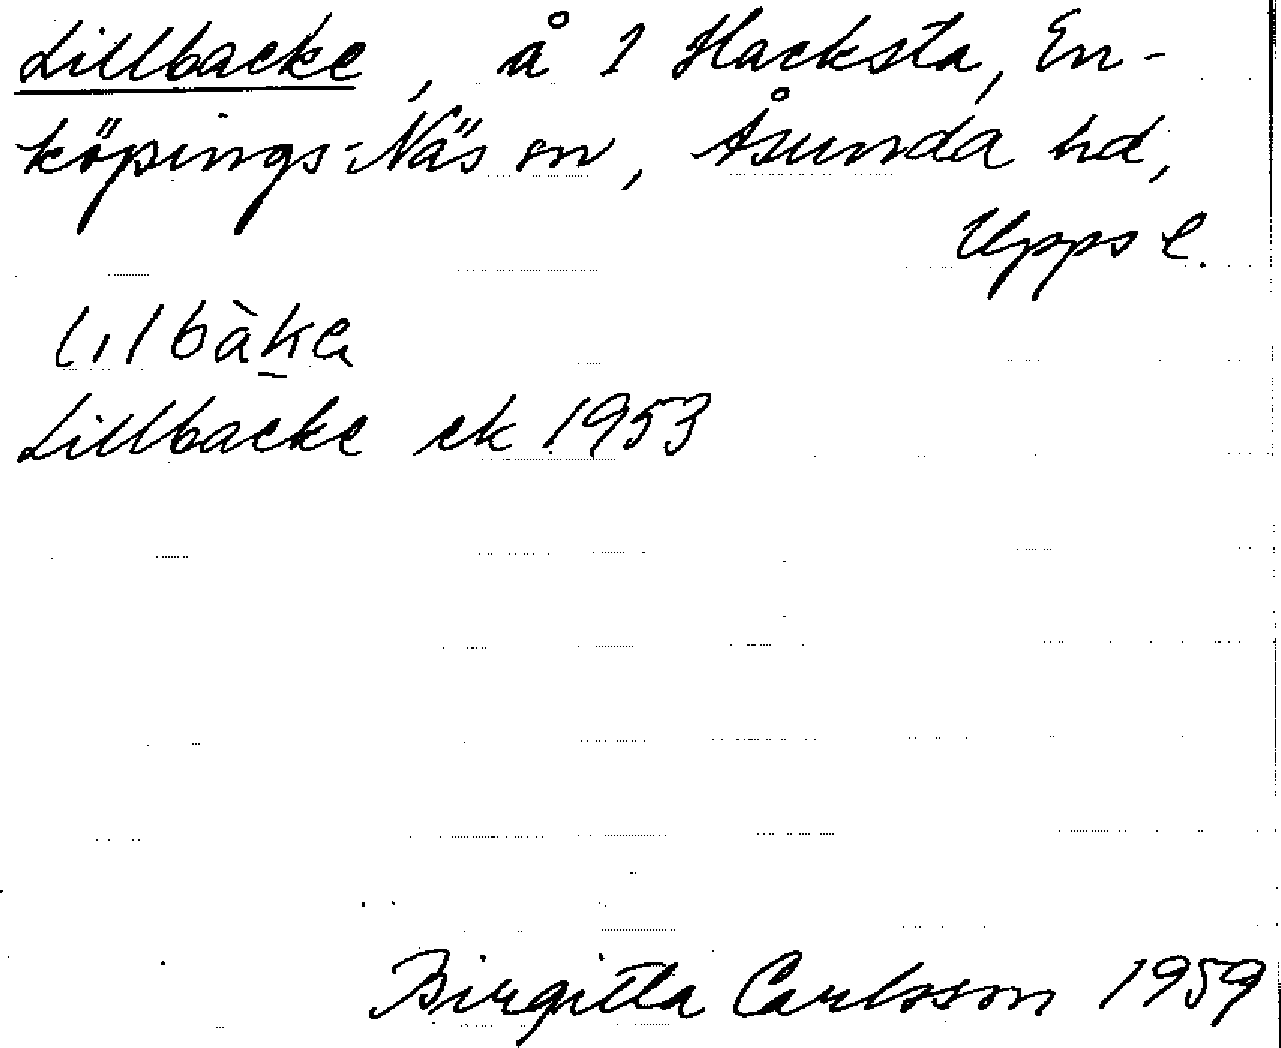 Lillbacke, å 1 Hacksta, En-
köpings-Näs sn, Åsunda hd,
Upps l.
lilbàka
Lillbacke ek 1953
Birgitta Carlsson 1959